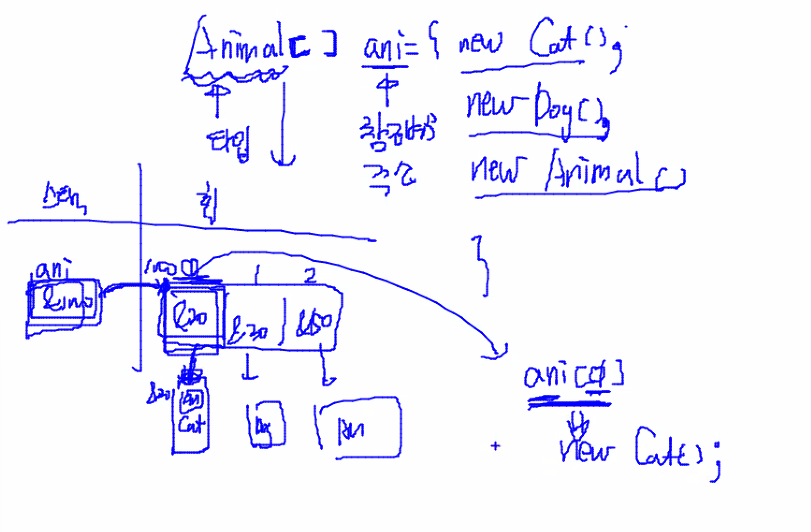 Animal[ ] ani={ new Cat();
new Dog(),
타입 참조변수
주소 new Animal()
스택 힙
}
ani 100 0 1 2
&100 &20 &30 &50
ani[0]
&20 An
Cat Dog An
new Cat();